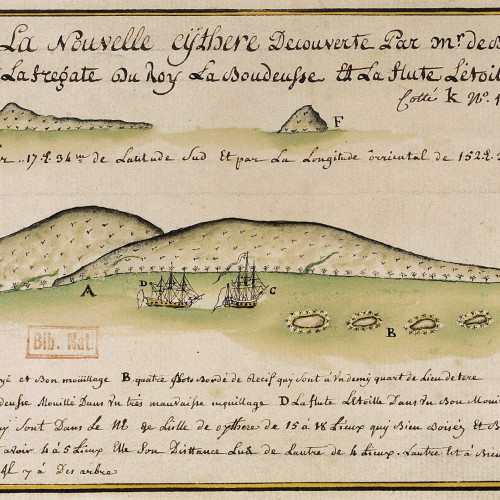 La Nouvelle cÿthere Decouverte Par mr. de B
La fregate Du Roy La Boudeusse Et La flute L'Étoil
Cotté K No. 4
F
17 34 de Latitude Sud Et par La Longitude orriental de 152
A
D
C
B
Bib. Nat.
et Bon moüillage B. quatre jlots Bordé de Recif quy sont à Vn demy quart de Lieu de tere
deusse Mouillé Dans Vn tres mauvaisse D La flute L'Étoille Dans Vn Bon Moui
uy sont Dans Le N de Lisle de cythere de 15 à Lieux quy Bien Boiséz Et B
avoir 4 à 5 Lieux Elle son Disttance de Lautre de 4 Lieux. Lautre Est à Bie
jl y à Des arbre